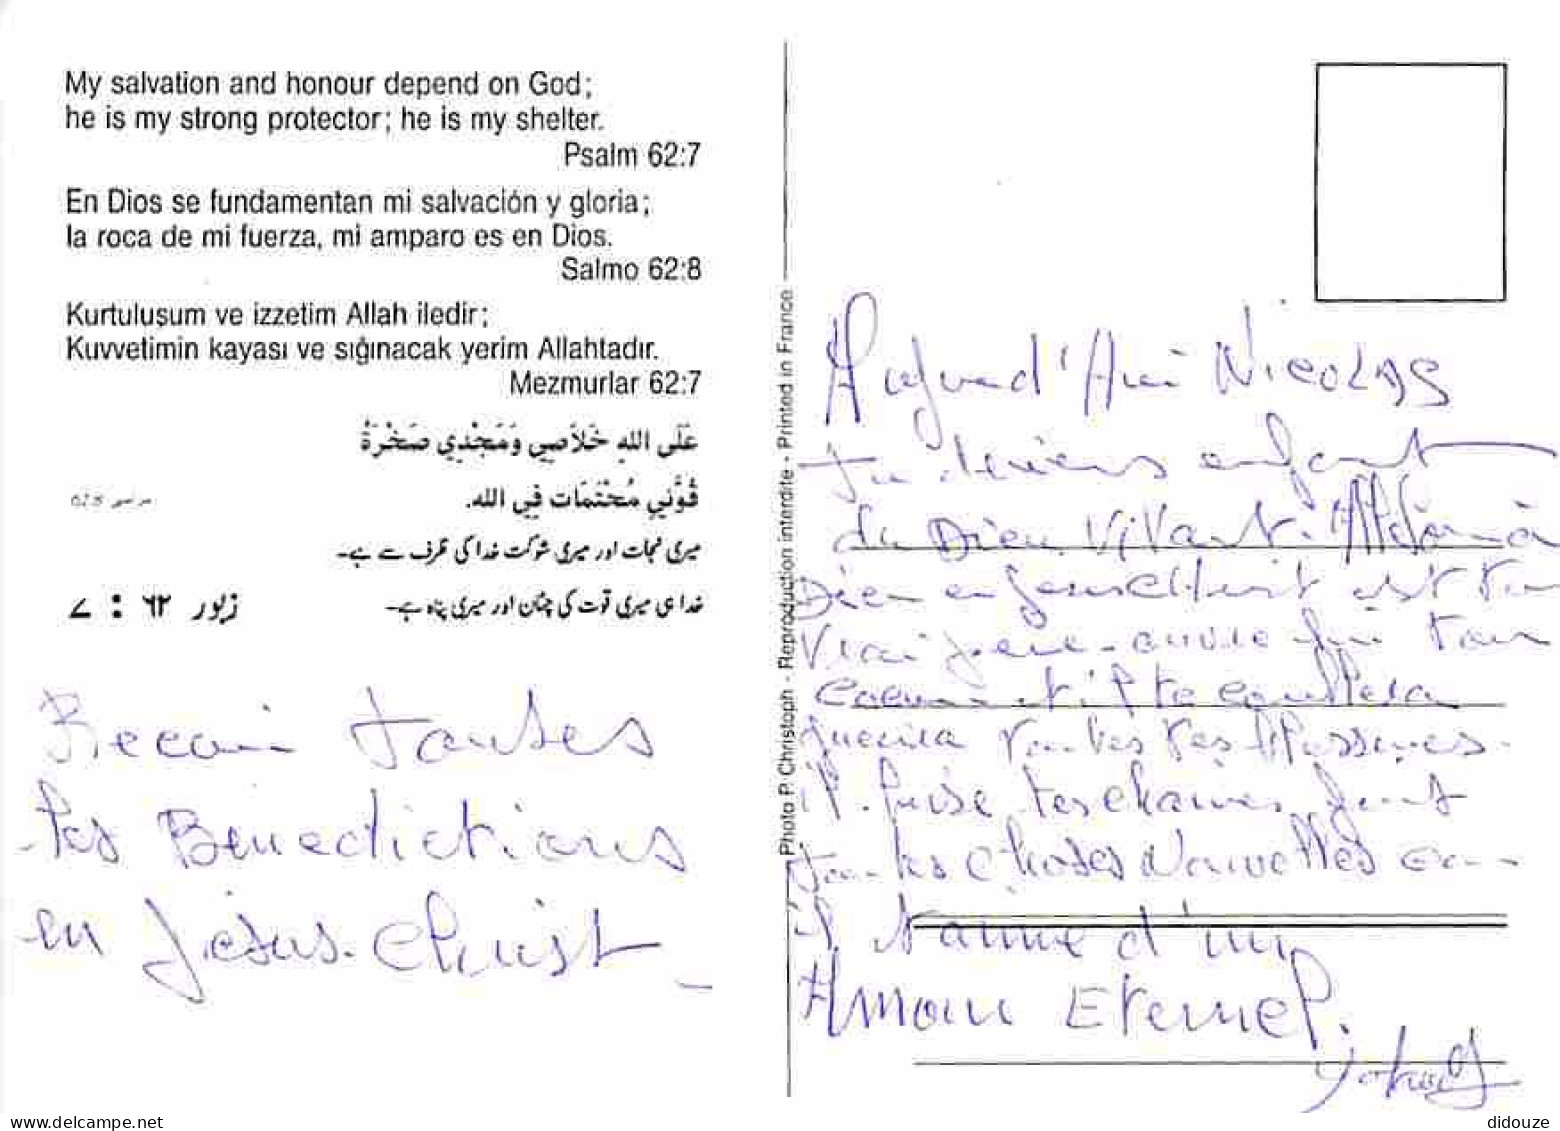 My salvation and honour depend on God;
he is my strong protector; he is my shelter.
Psalm 62:7
En Dios se fundamentan mi salvación y gloria;
la roca de mi fuerza, mi amparo es en Dios.
Salmo 62:8
Kurtuluşum ve izzetim Allah iledir;
Kuvvetimin kayası ve sığınacak yerim Allahtadır.
Mezmurlar 62:7
عَلَى اللهِ خَلاَصِي وَمَجْدِي صَخْرَةُ
قُوَّتِي مُحْتَمَات فِي الله.
میری نجات اور میری شوکت خدا کی طرف سے ہے۔
خدا ہی میری قوت کی چٹان اور میری پناہ ہے۔
زبور ٦٢ : ٧
Recoit toutes
les Benedictions
en Jesus. Christ
Photo P. Christoph - Reproduction interdite - Printed in France
Aujourd'Hui NicoLAS
tu deviens enfant
du Dieu Vivant.
Dieu en Jesus Christ est ton
Vrai pere. ouvre lui ton
coeur et il te comblera
guerira toutes tes Blessures.
il. brise tes chaines. font
toutes choses Nouvelles
il t'aime d'un
Amour Eternel.
delcampe.net
didouze